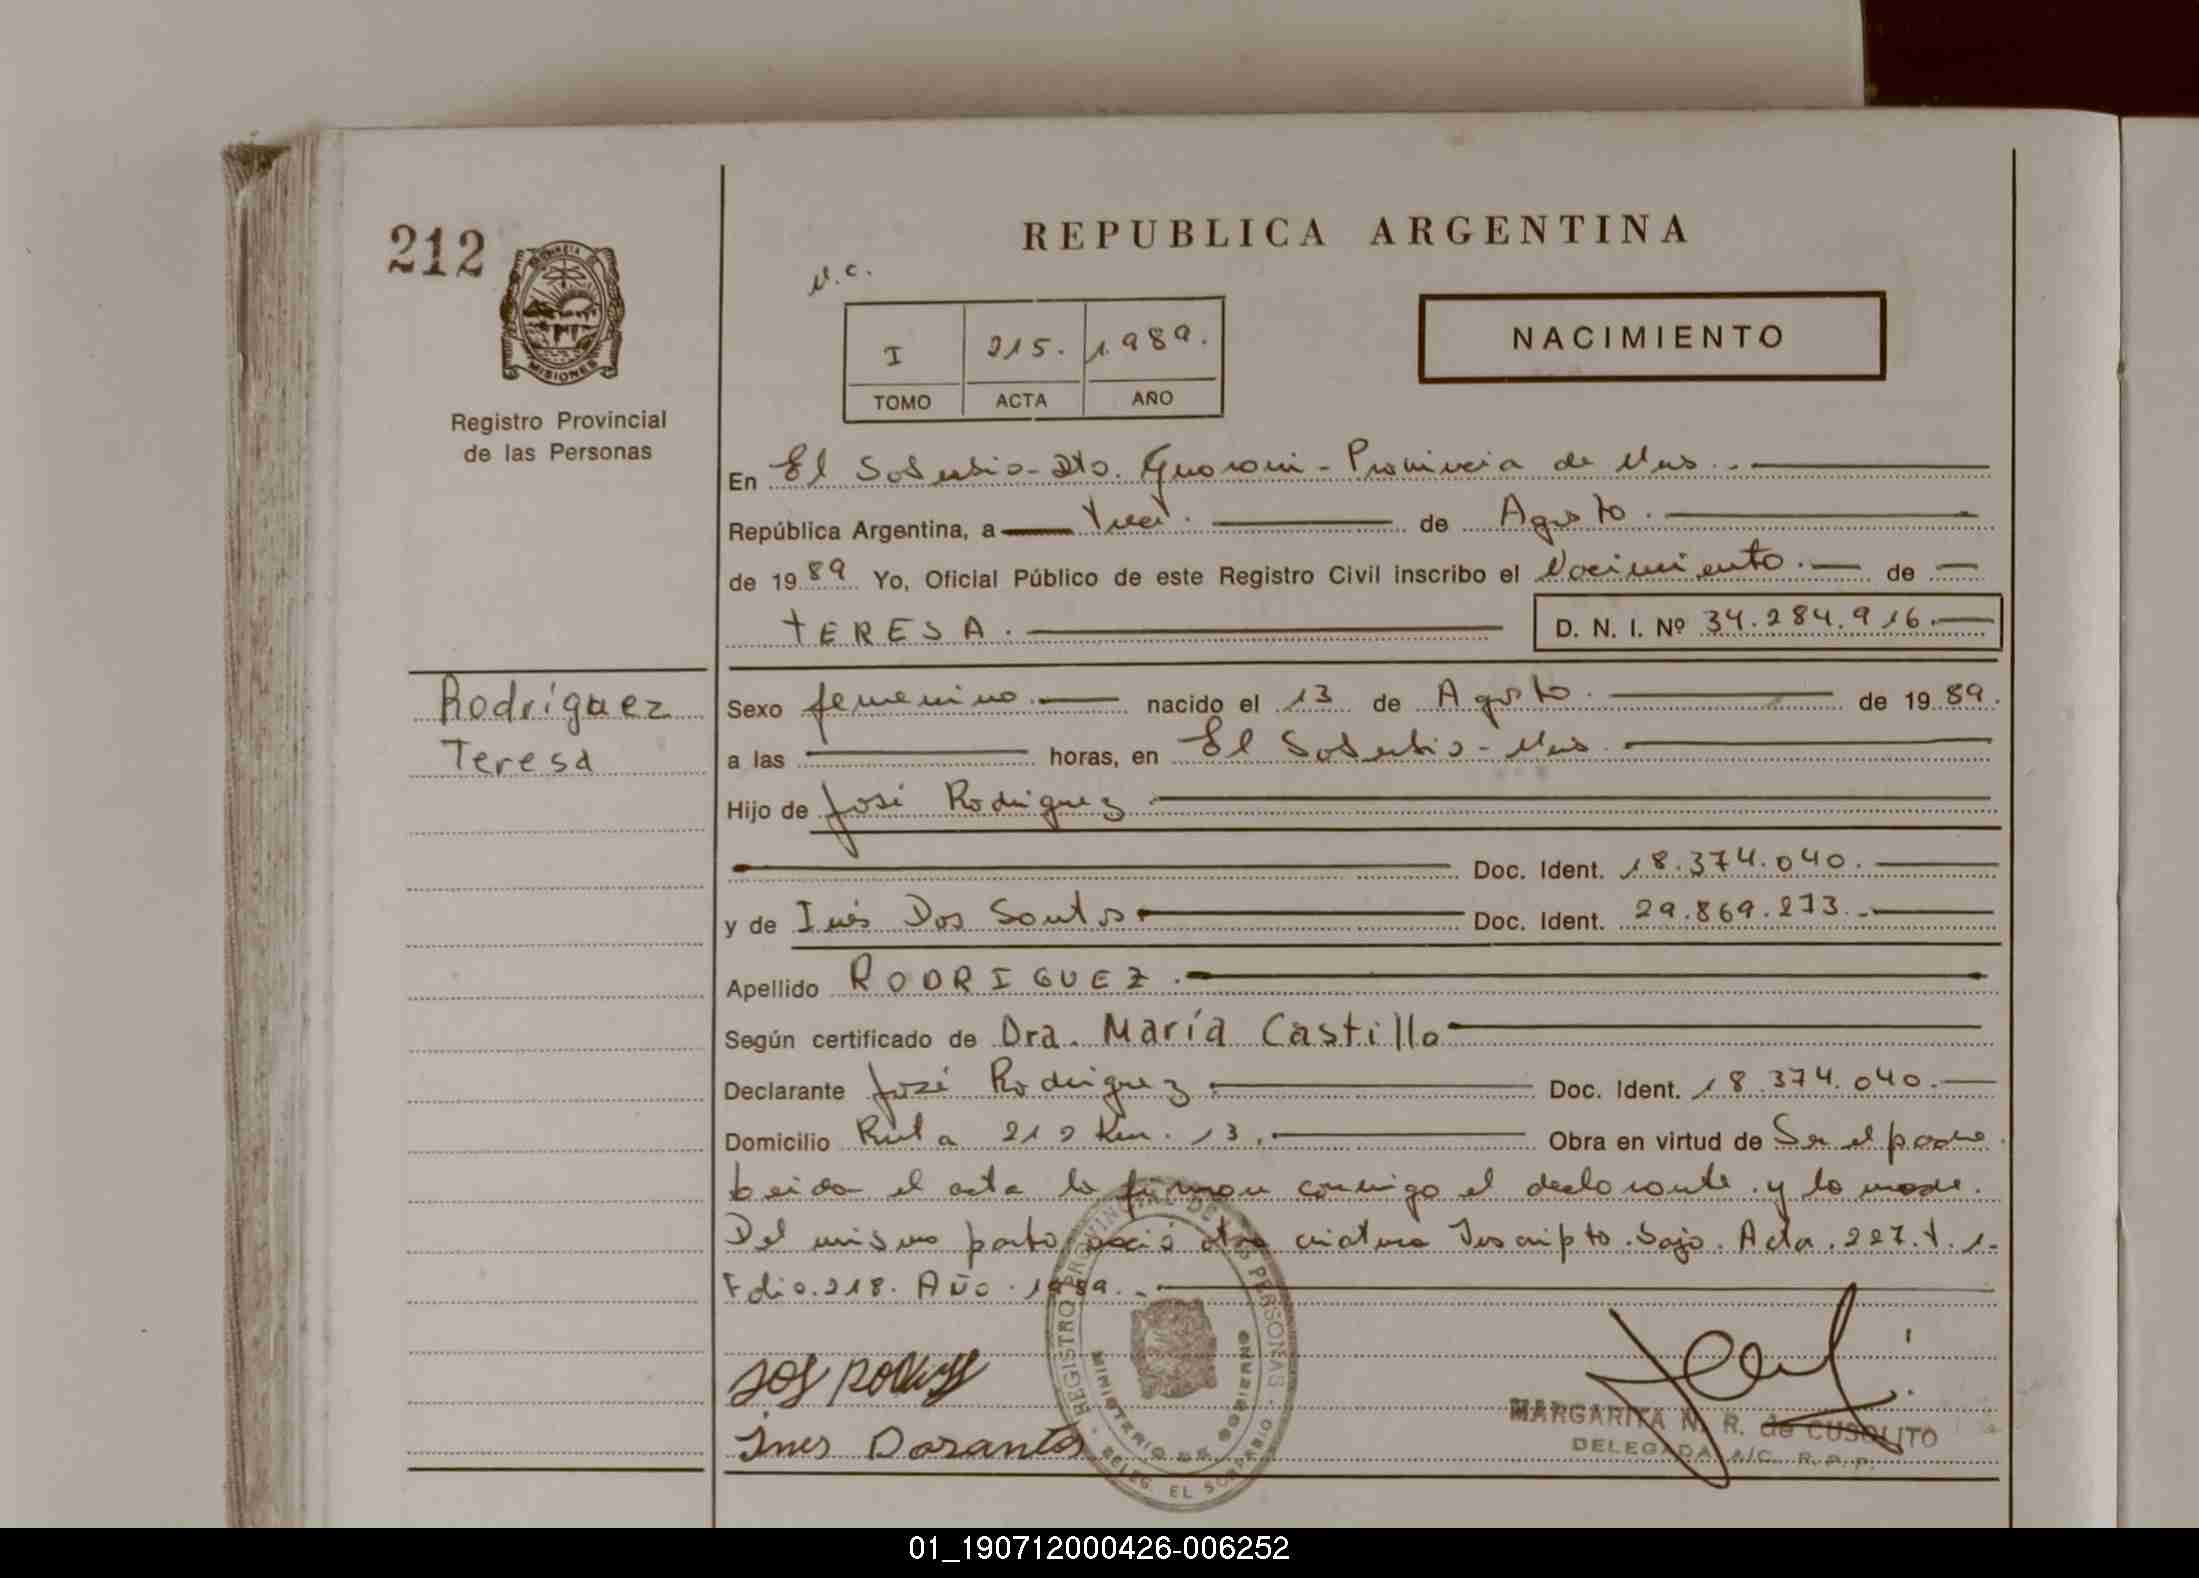 212
PROVINCIA DE
MISIONES
Registro Provincial
de las Personas
REPUBLICA ARGENTINA
N.C.
NACIMIENTO
I 215. 1.989.
TOMO ACTA AÑO
En El Soberbio - Dto. Guarani - Provincia de Mnes. -
República Argentina, a de Agosto.
de 1989 Yo, Oficial Público de este Registro Civil inscribo el Nacimiento. de
TERESA. D. N. I. Nº 34.284.916.
Rodríguez
Teresa
Sexo femenino. nacido el 13 de Agosto. de 1989.
a las horas, en El Soberbio - Mnes.
Hijo de José Rodriguez
Doc. Ident. 18.374.040.
y de Inés Dos Santos Doc. Ident. 29.869.273.-
Apellido RODRIGUEZ.
Según certificado de Dra. María Castillo
Declarante José Rodriguez Doc. Ident. 18.374.040.
Domicilio Ruta 212 Km. 13. Obra en virtud de Ser el padre.
Leida el acta la firman conmigo el declarante y la madre.
Del mismo parto nació otra criatura Inscripto. Bajo. Acta. 227. t. 1.
Folio. 218. Año. 1989.-
Ines Dosantos
REGISTRO PROVINCIAL DE LAS PERSONAS
MINISTERIO DE GOBIERNO
DELEG. EL SOBERBIO
MARGARITA N. R. de CUSOLITO
DELEGADA A/C. R. P. P.
01_190712000426-006252